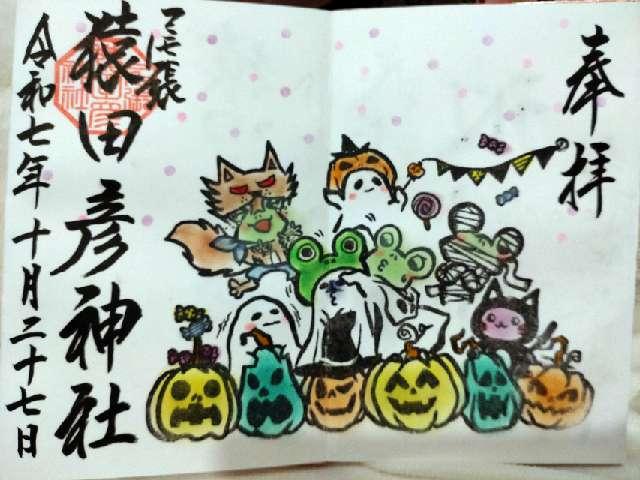 奉拝
猿田彦神社
令和七年十月二十七日